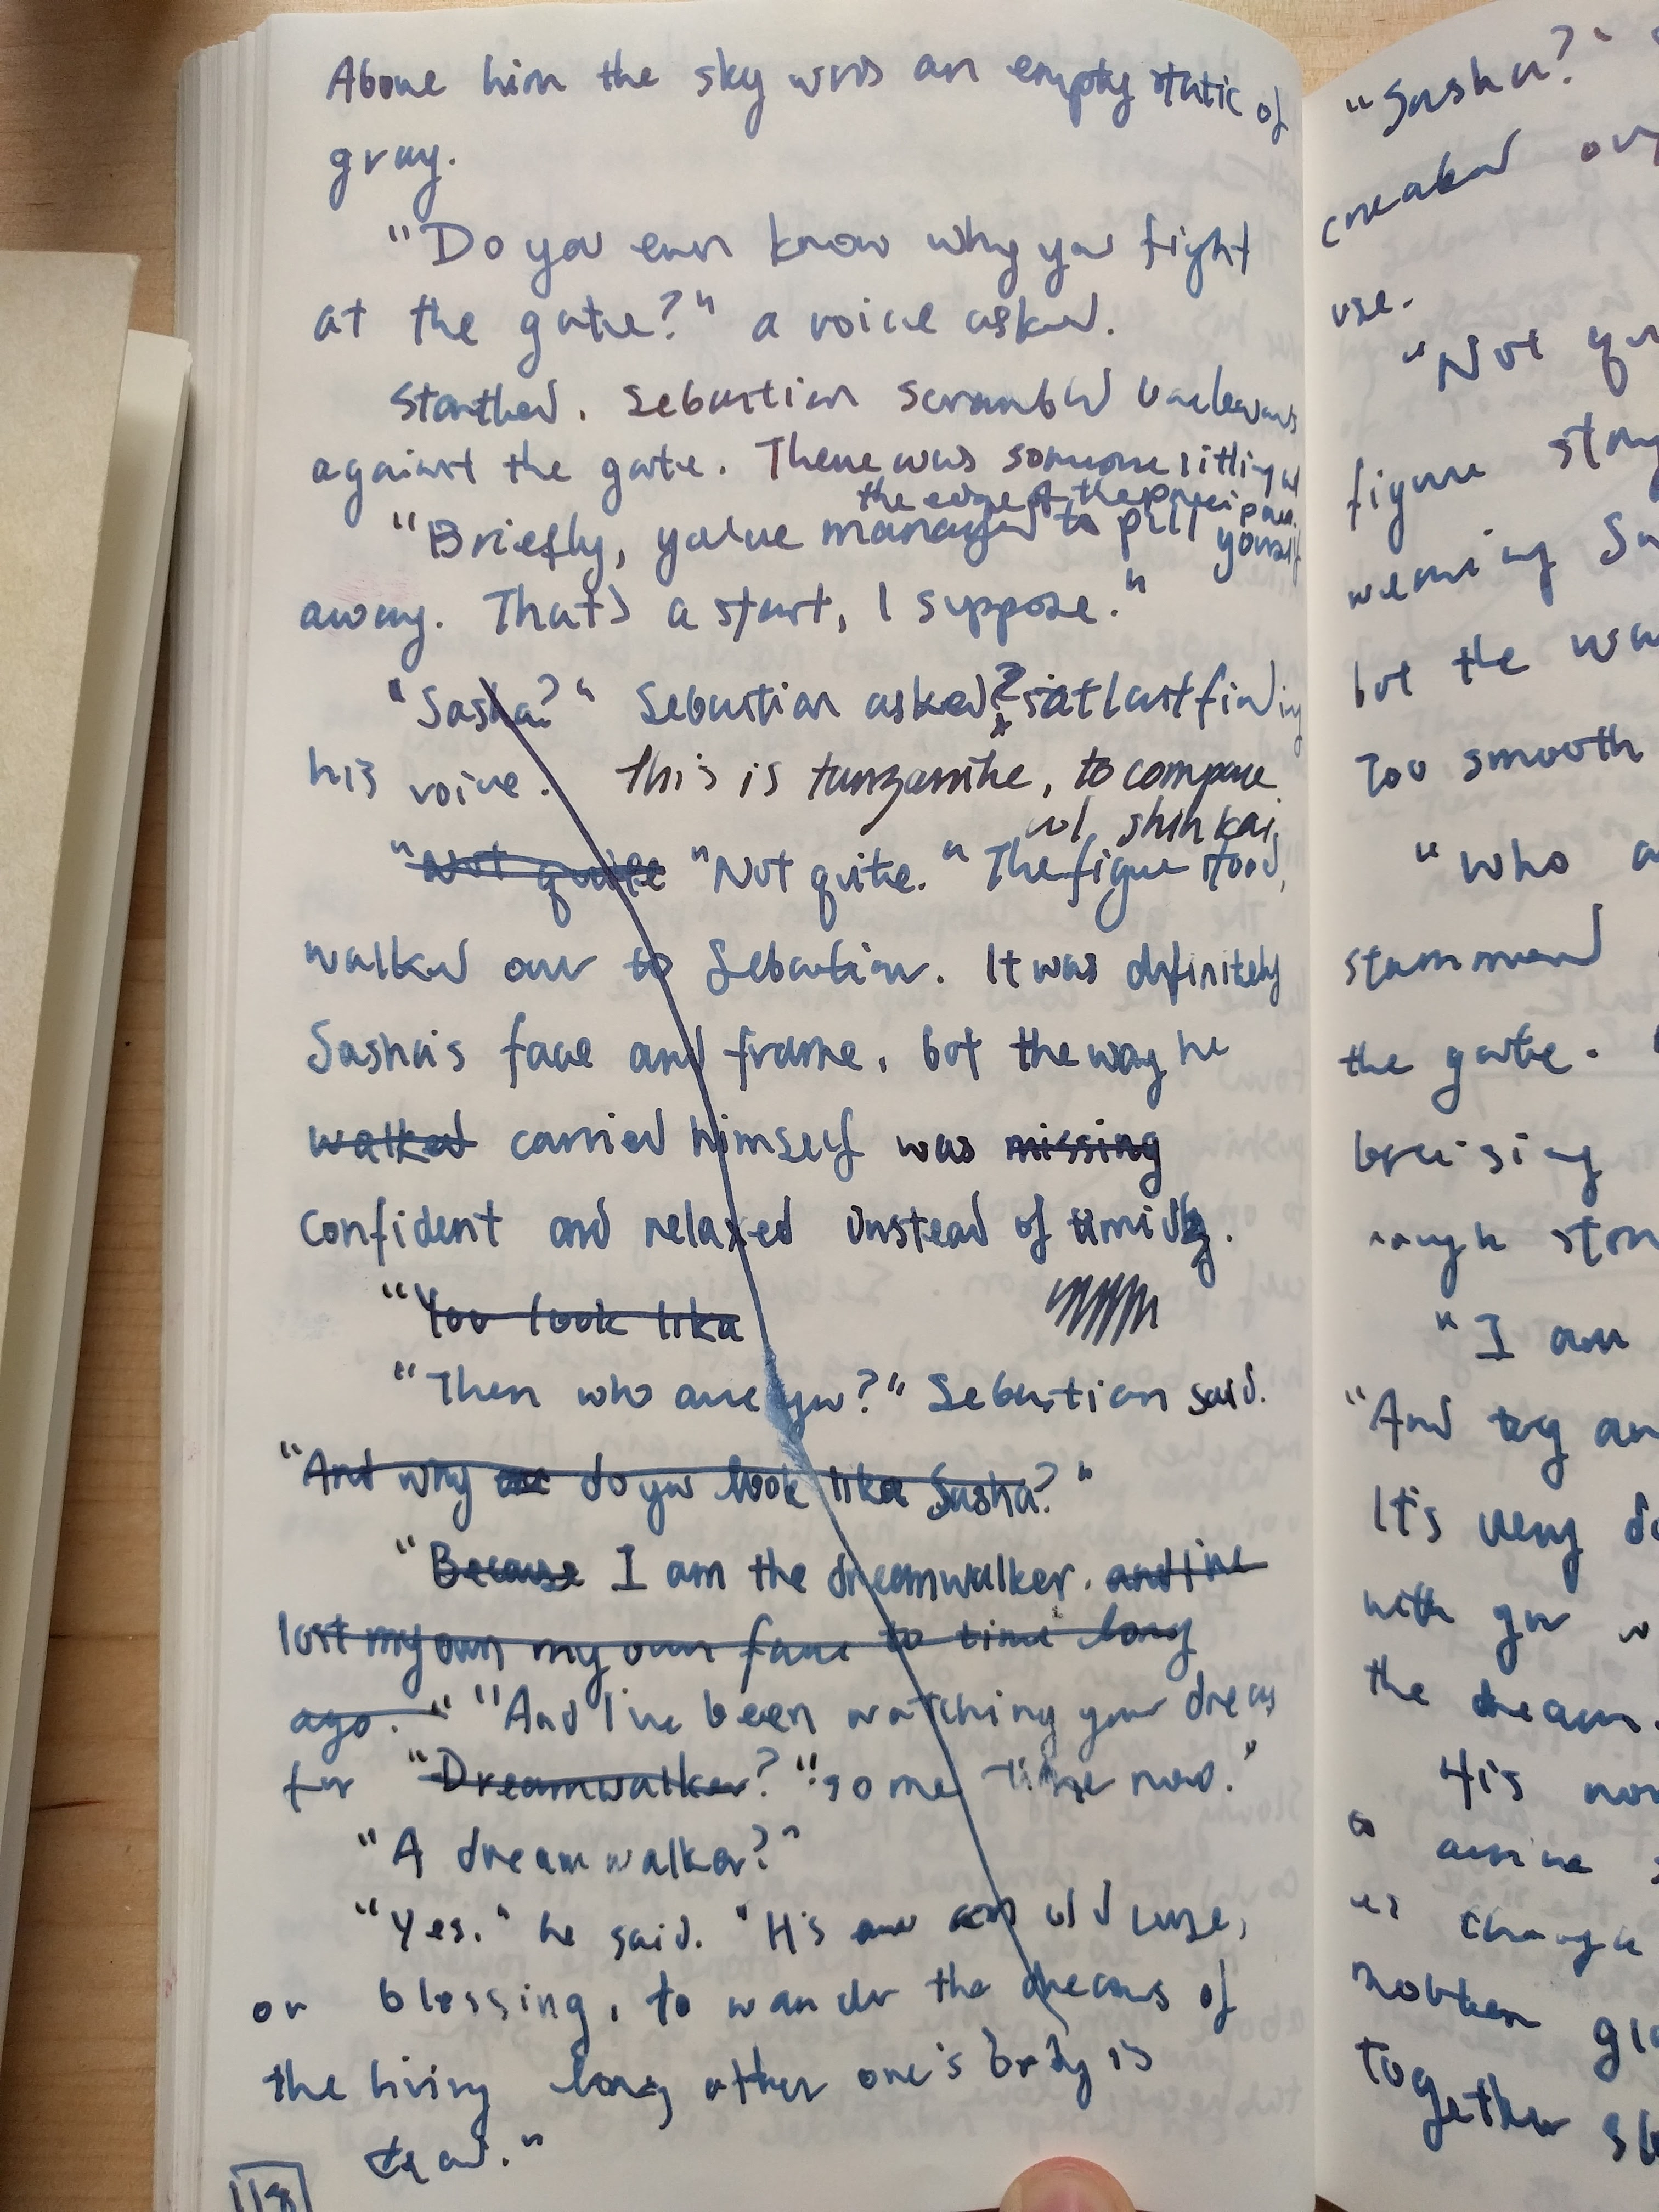 Above him the sky was an empty static of
gray.
"Do you even know why you fight
at the gate?" a voice asked.
Startled, Sebastian scrambled backwards
against the gate. There was someone sitting at
the edge of the precipice.
"Briefly, you've managed to pull yourself
away. That's a start, I suppose."
"Sasha?" Sebastian asked, at last finding
his voice. This is tanzanite, to compare
w/ shinkai
"Not quite "Not quite." The figure stood,
walked over to Sebastian. It was definitely
Sasha's face and frame, but the way he
walked carried himself was missing
confident and relaxed instead of timid.
"You look like
"Then who are you?" Sebastian said.
"And why do you look like Sasha?"
"Because I am the dreamwalker. and I've
lost my own my own face to time long
ago." "And I've been watching your dreams
for "Dreamwalker?" some time now."
"A dreamwalker?"
"Yes." he said. "It's an old curse,
or blessing, to wander the dreams of
the living long after one's body is
dead."
118
"Sasha?"
use.
"Not
figure
but the
Too smooth
"Who
stammered
the gate.
bruising
rough
"I am
"And
It's very
with you
the dream.
together